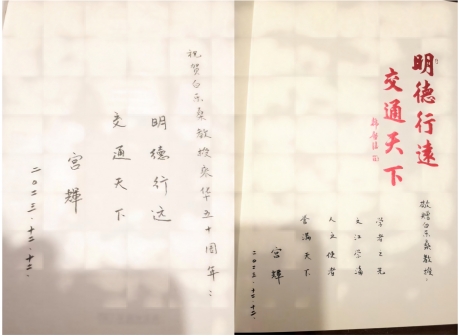 祝贺白乐桑教授来华五十周年：
明德行远
交通天下
宫輝
二〇二三.十二.十二.
明德行遠
交通天下
敬赠白乐桑教授：
学者之光
文江学海
人文使者
誉满天下
宫輝
二〇二三.十二.十二.